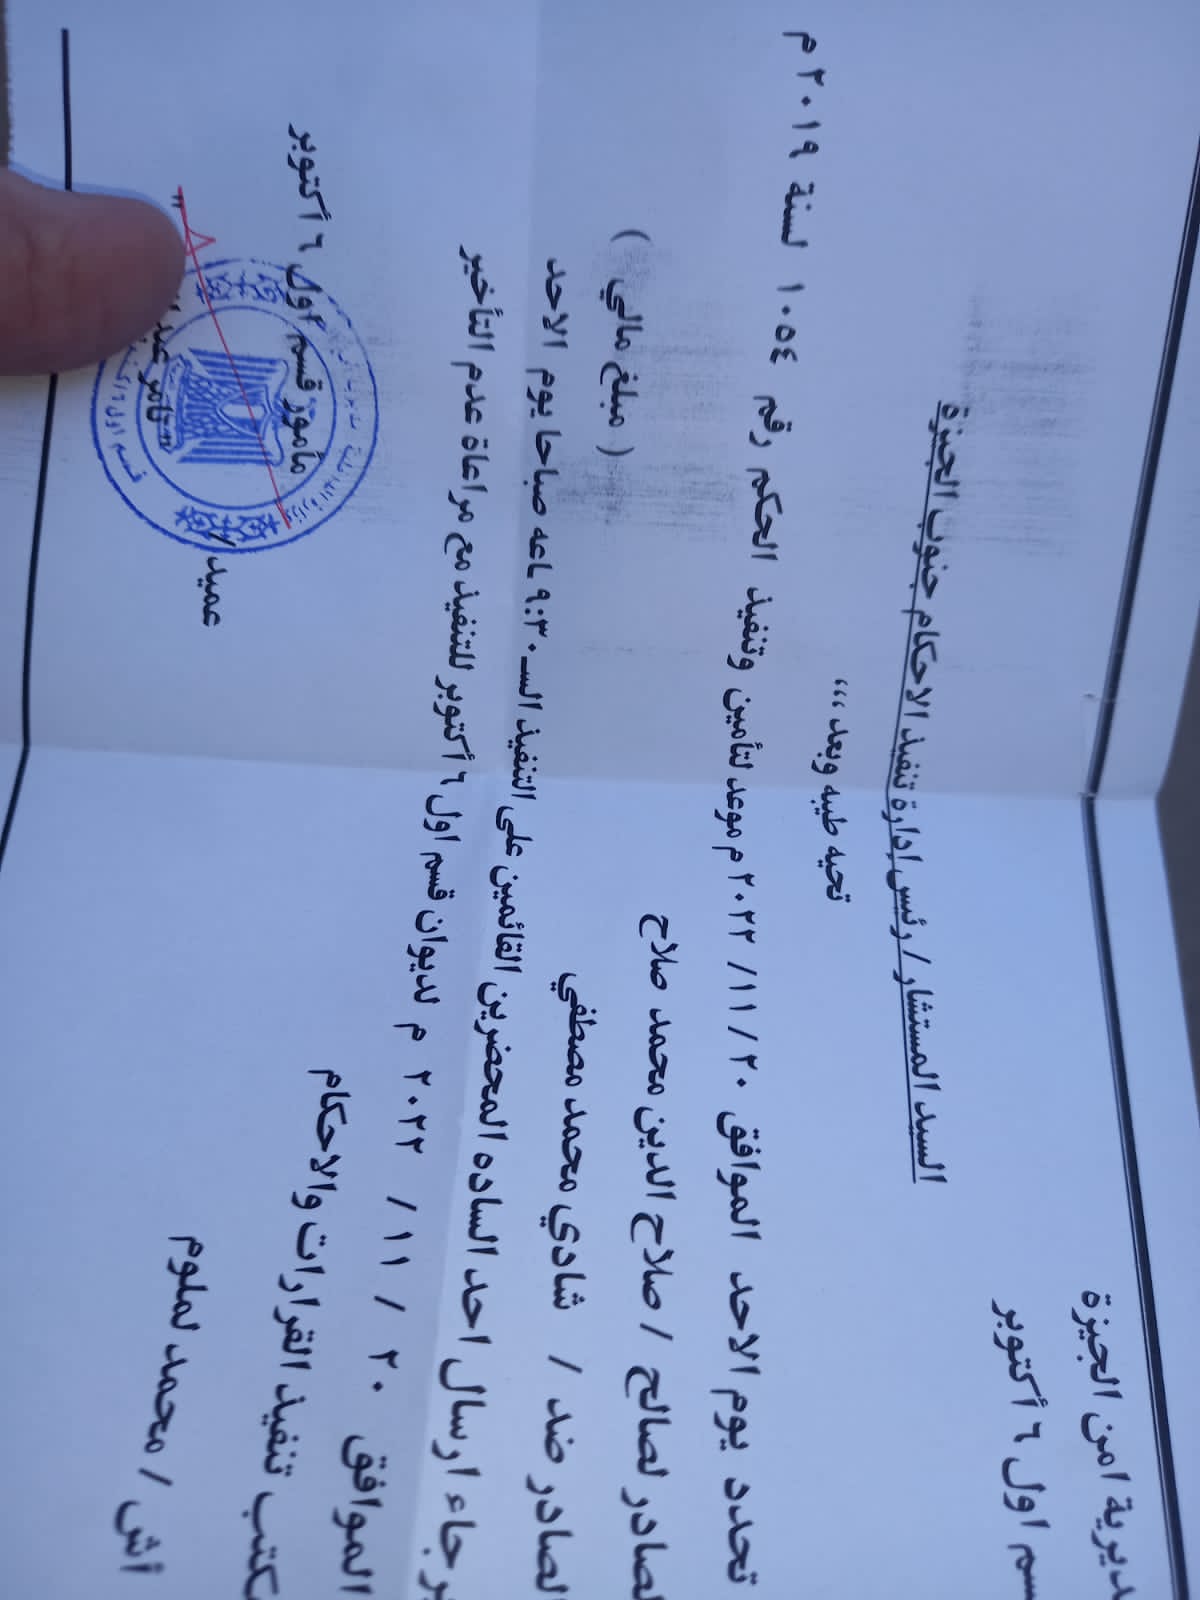 ديرية امن الجيزة
سم اول ٦ أكتوبر
السيد المستشار / رئيس إدارة تنفيذ الاحكام جنوب الجيزة
تحيه طيبه وبعد ،،،
تحدد يوم الاحد الموافق ٢٠ / ١١ / ٢٠٢٢ م موعد لتأمين وتنفيذ الحكم رقم ١٠٥٤ لسنة ٢٠١٩ م
لصادر لصالح / صلاح الدين محمد صلاح
( مبلغ مالي )
لصادر ضد / شادي محمد مصطفي
رجاء ارسال احد الساده المحضرين القائمين على التنفيذ الســ ٩:٣٠ ـاعه صباحا يوم الاحد
الموافق ٢٠ / ١١ / ٢٠٢٢ م لديوان قسم اول ٦ أكتوبر للتنفيذ مع مراعاة عدم التأخير
كتب تنفيذ القرارات والاحكام
مأمور قسم اول ٦ أكتوبر
أش / محمد لملوم
عميد /
" تامر